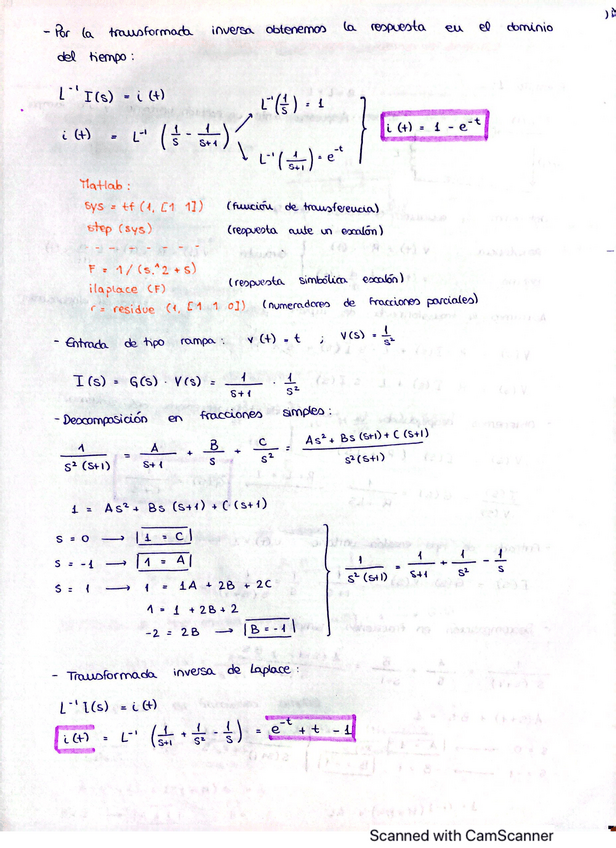 - Por la transformada inversa obtenemos la respuesta en el dominio
del tiempo:
L⁻¹ I(s) = i(t)
L⁻¹(1/s) = 1
i(t) = L⁻¹ (1/s - 1/(s+1))
i(t) = 1 - e^-t
L⁻¹(1/(s+1)) = e^-t
Matlab:
sys = tf (1, [1 1]) (función de transferencia)
step (sys) (respuesta ante un escalón)
- - - - - - -
F = 1/(s.^2 + s)
ilaplace (F) (respuesta simbólica escalón)
r = residue (1, [1 1 0]) (numeradores de fracciones parciales)
- Entrada de tipo rampa: v(t) = t ; V(s) = 1/s²
I(s) = G(s) · V(s) = 1/(s+1) · 1/s²
- Descomposición en fracciones simples:
1/(s²(s+1)) = A/(s+1) + B/s + C/s² = (As² + Bs(s+1) + C(s+1))/(s²(s+1))
1 = As² + Bs (s+1) + C (s+1)
s = 0 → 1 = C
s = -1 → 1 = A
s = 1 → 1 = 1A + 2B + 2C
1/(s²(s+1)) = 1/(s+1) + 1/s² - 1/s
1 = 1 + 2B + 2
-2 = 2B → B = -1
- Transformada inversa de Laplace:
L⁻¹ I(s) = i(t)
i(t) = L⁻¹ (1/(s+1) + 1/s² - 1/s) = e^-t + t - 1
Scanned with CamScanner